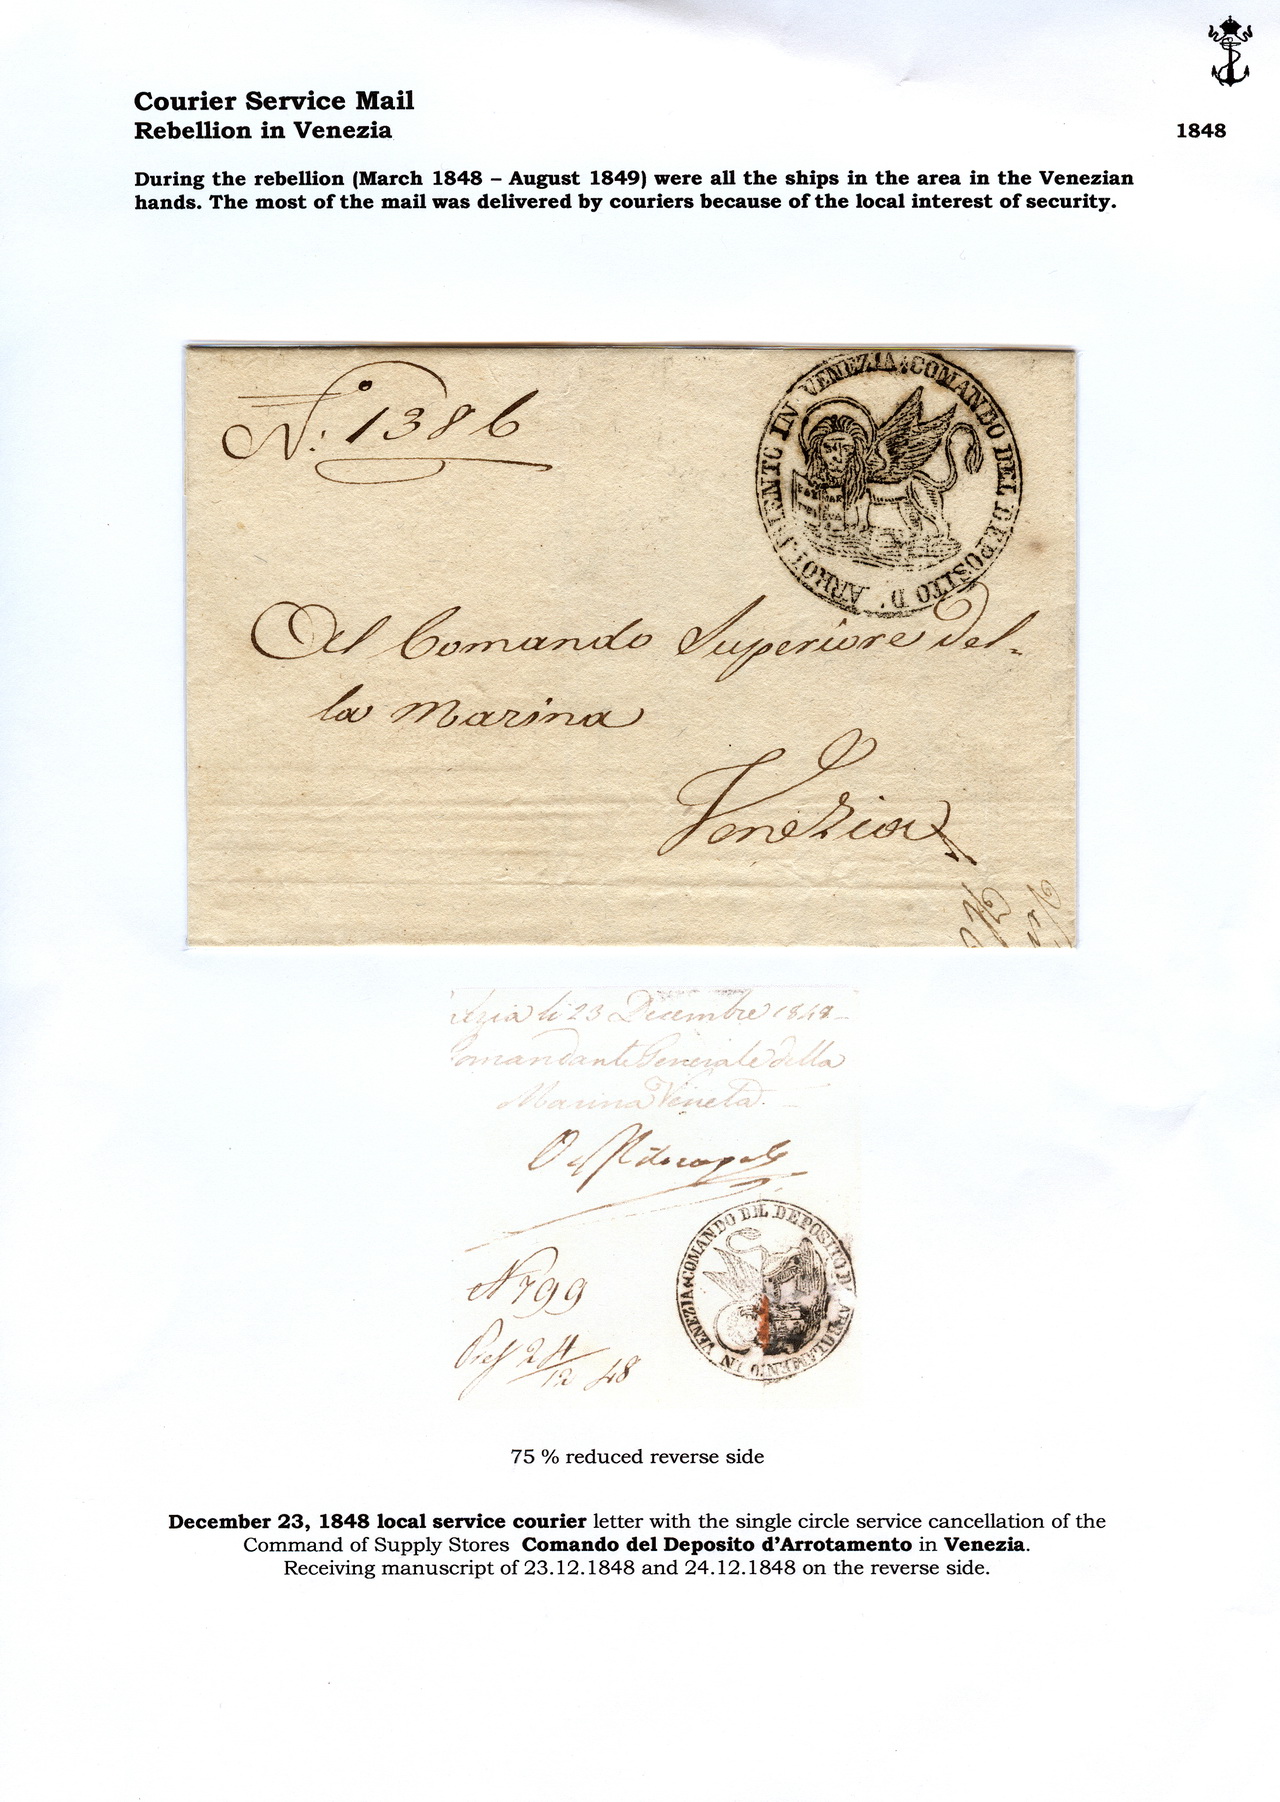 Courier Service Mail
Rebellion in Venezia
1848
During the rebellion (March 1848 – August 1849) were all the ships in the area in the Venezian
hands. The most of the mail was delivered by couriers because of the local interest of security.
N.° 1386
COMANDO DEL DEPOSITO D' ARRO ENTO IN VENEZIA
Al Comando Superiore del-
la Marina
Venezia
li 23 Decembre 1848
Comandante Generale della
Marina Veneta.
N 799
24/12 48
COMANDO DEL DEPOSITO D' ARROLAMENTO IN VENEZIA
75 % reduced reverse side
December 23, 1848 local service courier letter with the single circle service cancellation of the
Command of Supply Stores Comando del Deposito d'Arrotamento in Venezia.
Receiving manuscript of 23.12.1848 and 24.12.1848 on the reverse side.